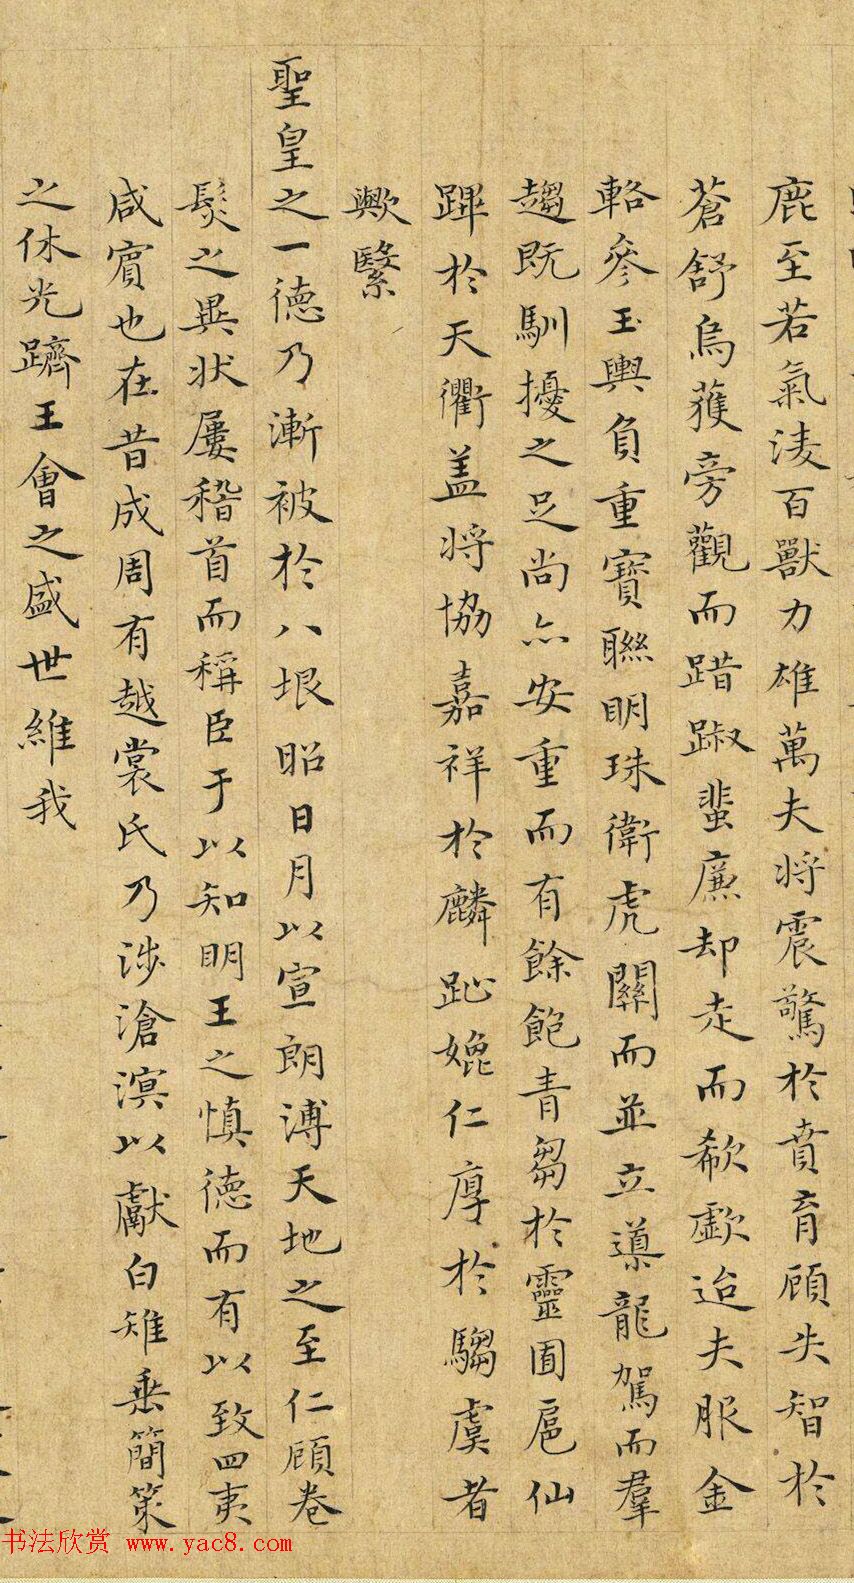 鹿至若氣淩百獸力雄萬夫将震驚於賁育顧失智於
蒼舒烏獲旁觀而踖踧蜚廉却走而欷歔迨夫服金
輅參玉輿負重寶聯明珠衛虎關而並立導龍駕而羣
趨既馴擾之足尚亦安重而有餘飽青芻於靈囿扈仙
蹕於天衢盖将協嘉祥於麟趾媲仁厚於騶虞者
歟繄
聖皇之一德乃漸被於八垠昭日月以宣朗溥天地之至仁顧卷
髮之異状屢稽首而稱臣于以知明王之慎德而有以致四夷
咸賓也在昔成周有越裳氏乃涉滄溟以獻白雉垂簡策
之休光躋王會之盛世維我
书法欣赏 www.yac8.com